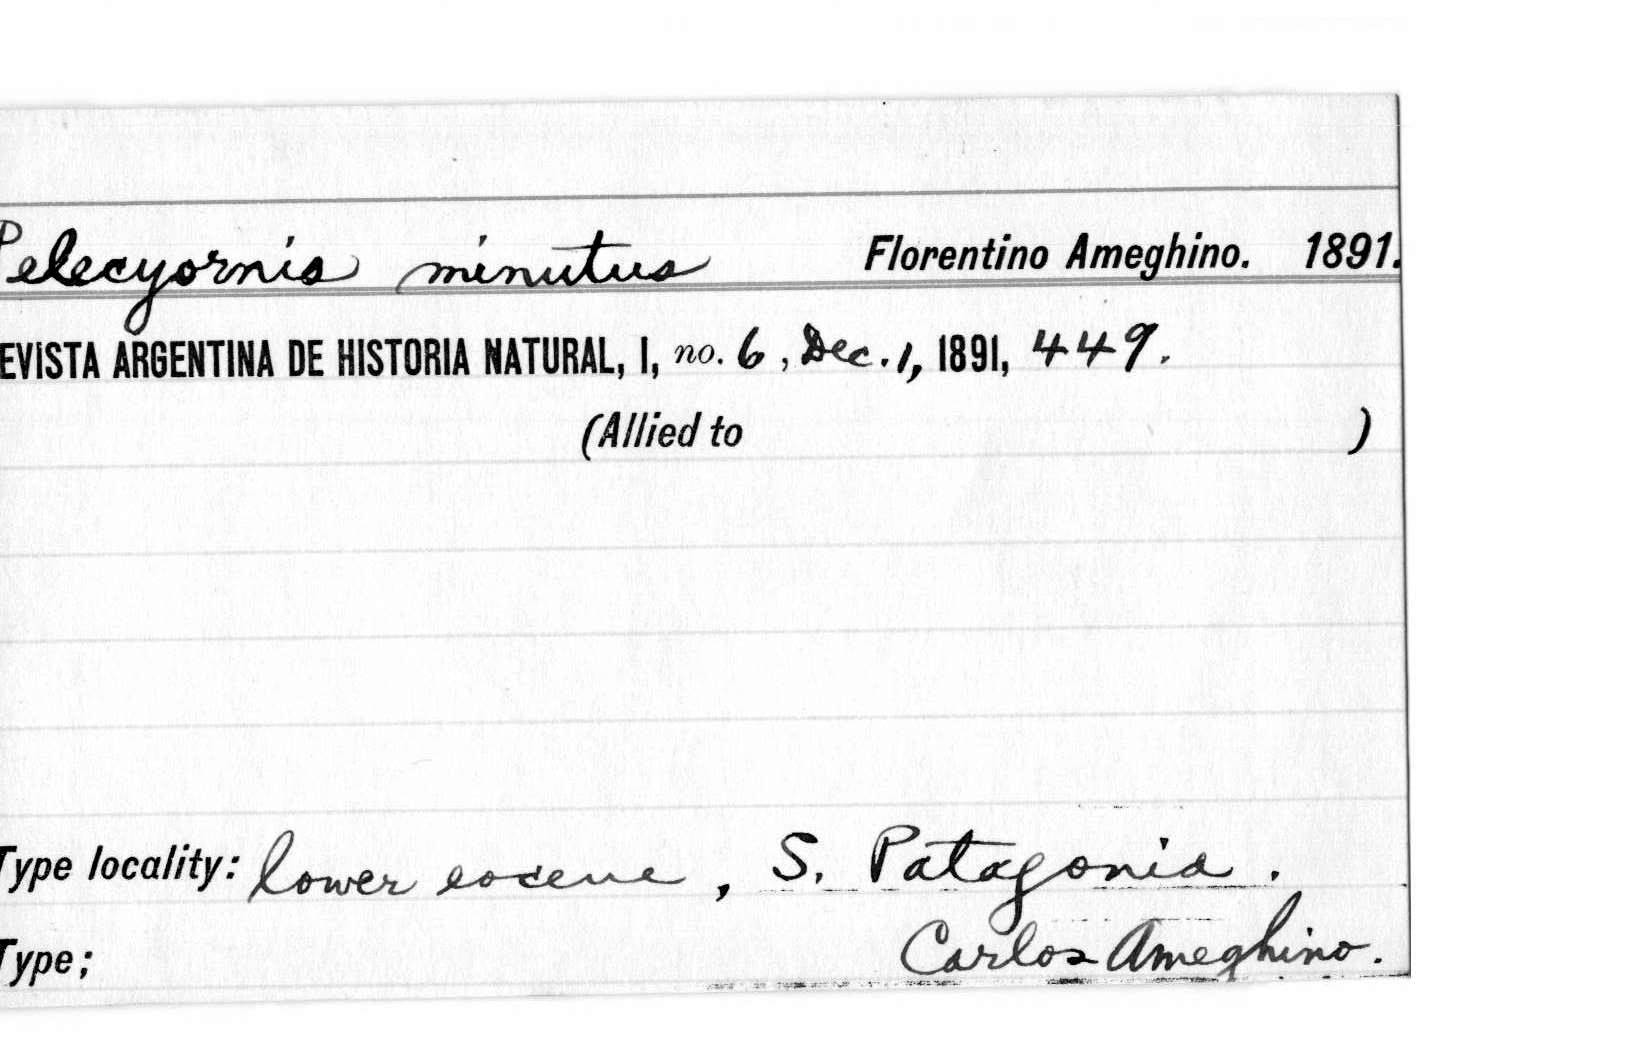 Pelecyornis minutus Florentino Ameghino. 1891.
EVISTA ARGENTINA DE HISTORIA NATURAL, I, no. 6, Dec. 1, 1891, 449.
(Allied to )
Type locality: lower eocene, S. Patagonia.
Type; Carlos Ameghino.